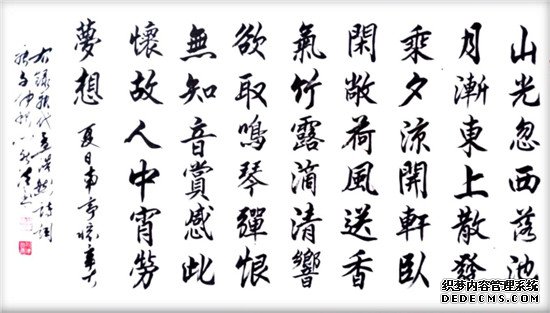 山光忽西落池
月漸東上散發
乘夕涼開軒臥
閑敞荷風送香
氣竹露滴清響
欲取鳴琴彈恨
無知音賞感此
懷故人中宵勞
夢想 夏日南亭懷辛大
右錄唐代孟浩然詩詞
织梦内容管理系统
DEDECMS.COM